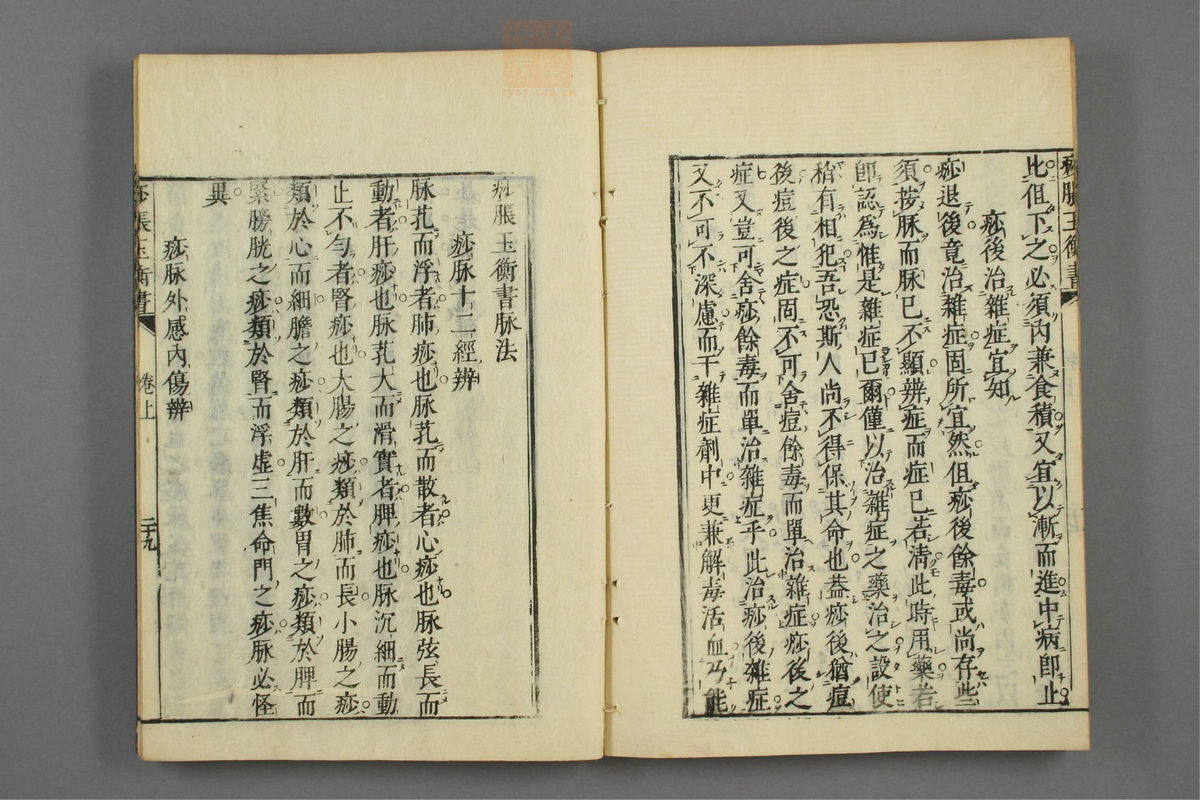 痧脹玉衡書
比但下之必須內兼食積又宜以漸而進中病卽止
痧後治雜症宜知
痧退後竟治雜症固所宜然但痧後餘毒或尚存些
須按脉而脉已不顯辨症而症已若淸此時用藥若
卽認爲惟是雜症已爾僅以治雜症之藥治之設使
稍有相犯吾恐斯人尚不得保其命也葢痧後猶痘
後痘後之症固不可舍痘餘毒而單治雜症痧後之
症又豈可舍痧餘毒而單治雜症乎此治痧後雜症
又不可不深慮而于雜症劑中更兼解毒活血乃能
痧脹玉衡書脉法
痧脉十二經辨
脉芤而浮者肺痧也脉芤而散者心痧也脉弦長而
動者肝痧也脉芤大而滑實者脾痧也脉沉細而動
止不勻者腎痧也大腸之痧類於肺而長小腸之痧
類於心而細膽之痧類於肝而數胃之痧類於脾而
緊膀胱之痧類於腎而浮虛三焦命門之痧脉必怪
異
痧脉外感內傷辨
痧脹玉衡書
卷上
二十九